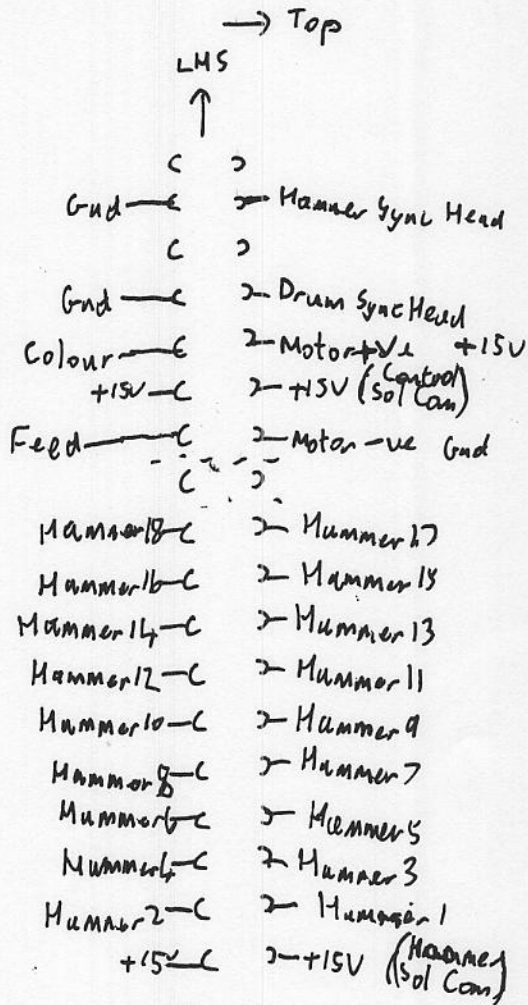 → Top
LHS
Gnd Hammer Sync Head
Gnd Drum Sync Head
Colour Motor +Ve +15V
+15V +15V (Control Sol Com)
Feed Motor -ve Gnd
Hammer 18 Hammer 17
Hammer 16 Hammer 15
Hammer 14 Hammer 13
Hammer 12 Hammer 11
Hammer 10 Hammer 9
Hammer 8 Hammer 7
Hammer 6 Hammer 5
Hammer 4 Hammer 3
Hammer 2 Hammer 1
+15V +15V (Hammer Sol Com)